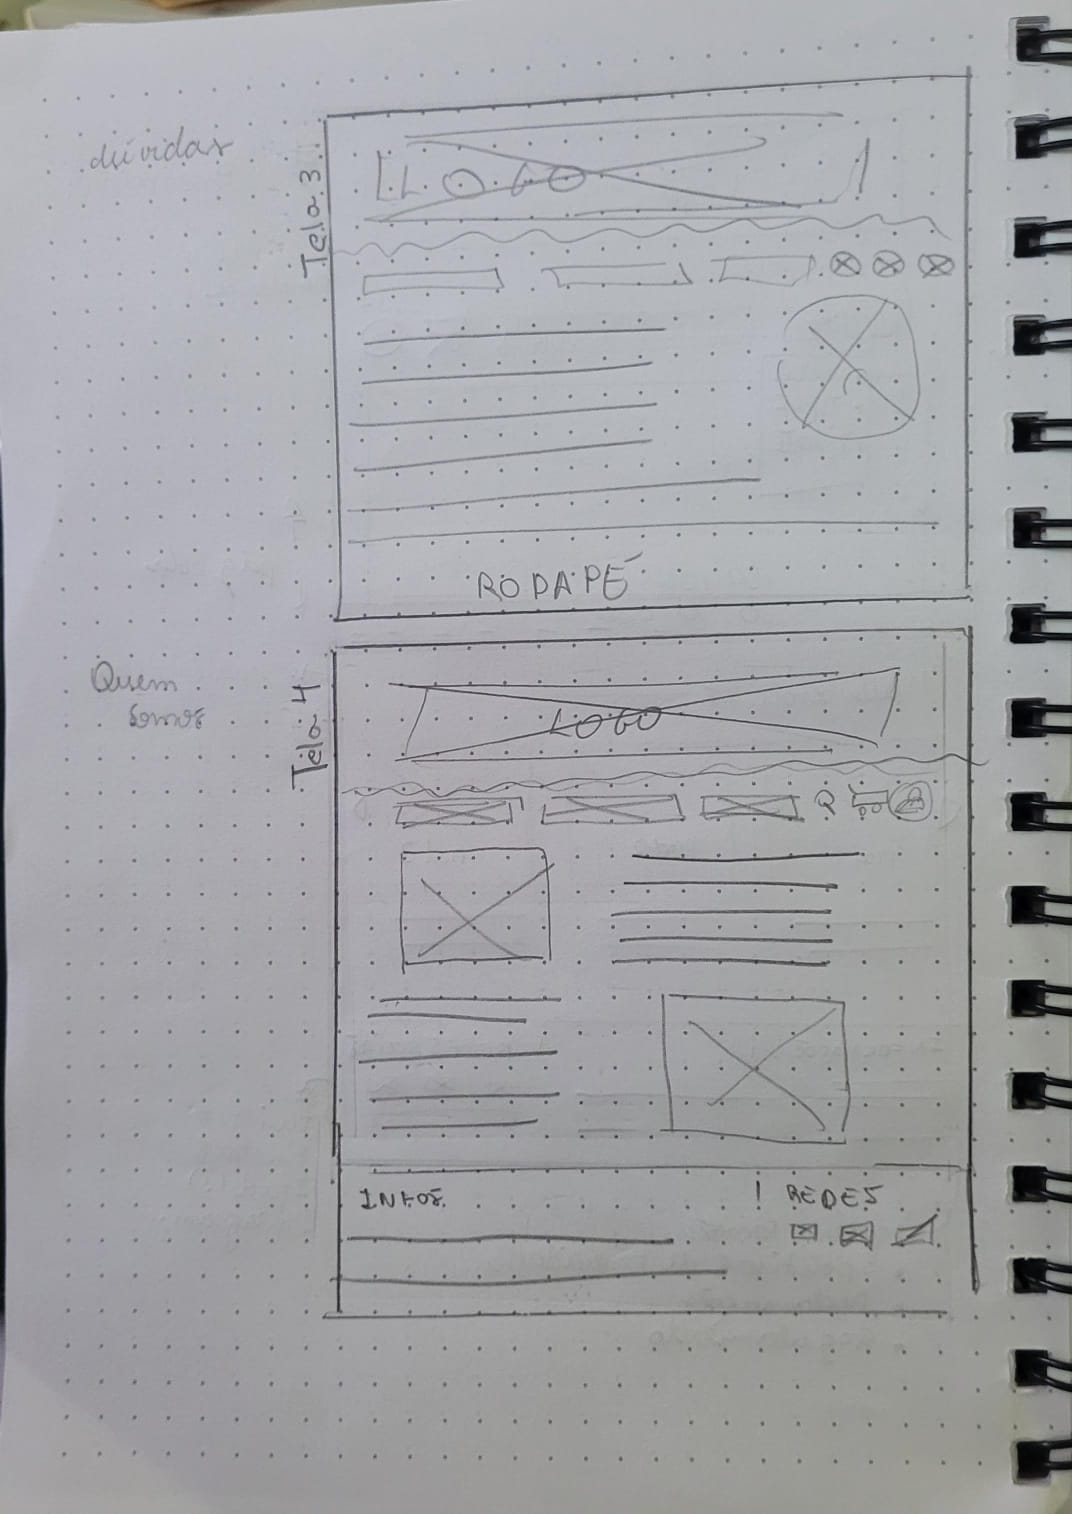 dúvidas
Tela 3
LOGO
RODAPÉ
Quem
somos
Tela 4
LOGO
INFOS
! REDES